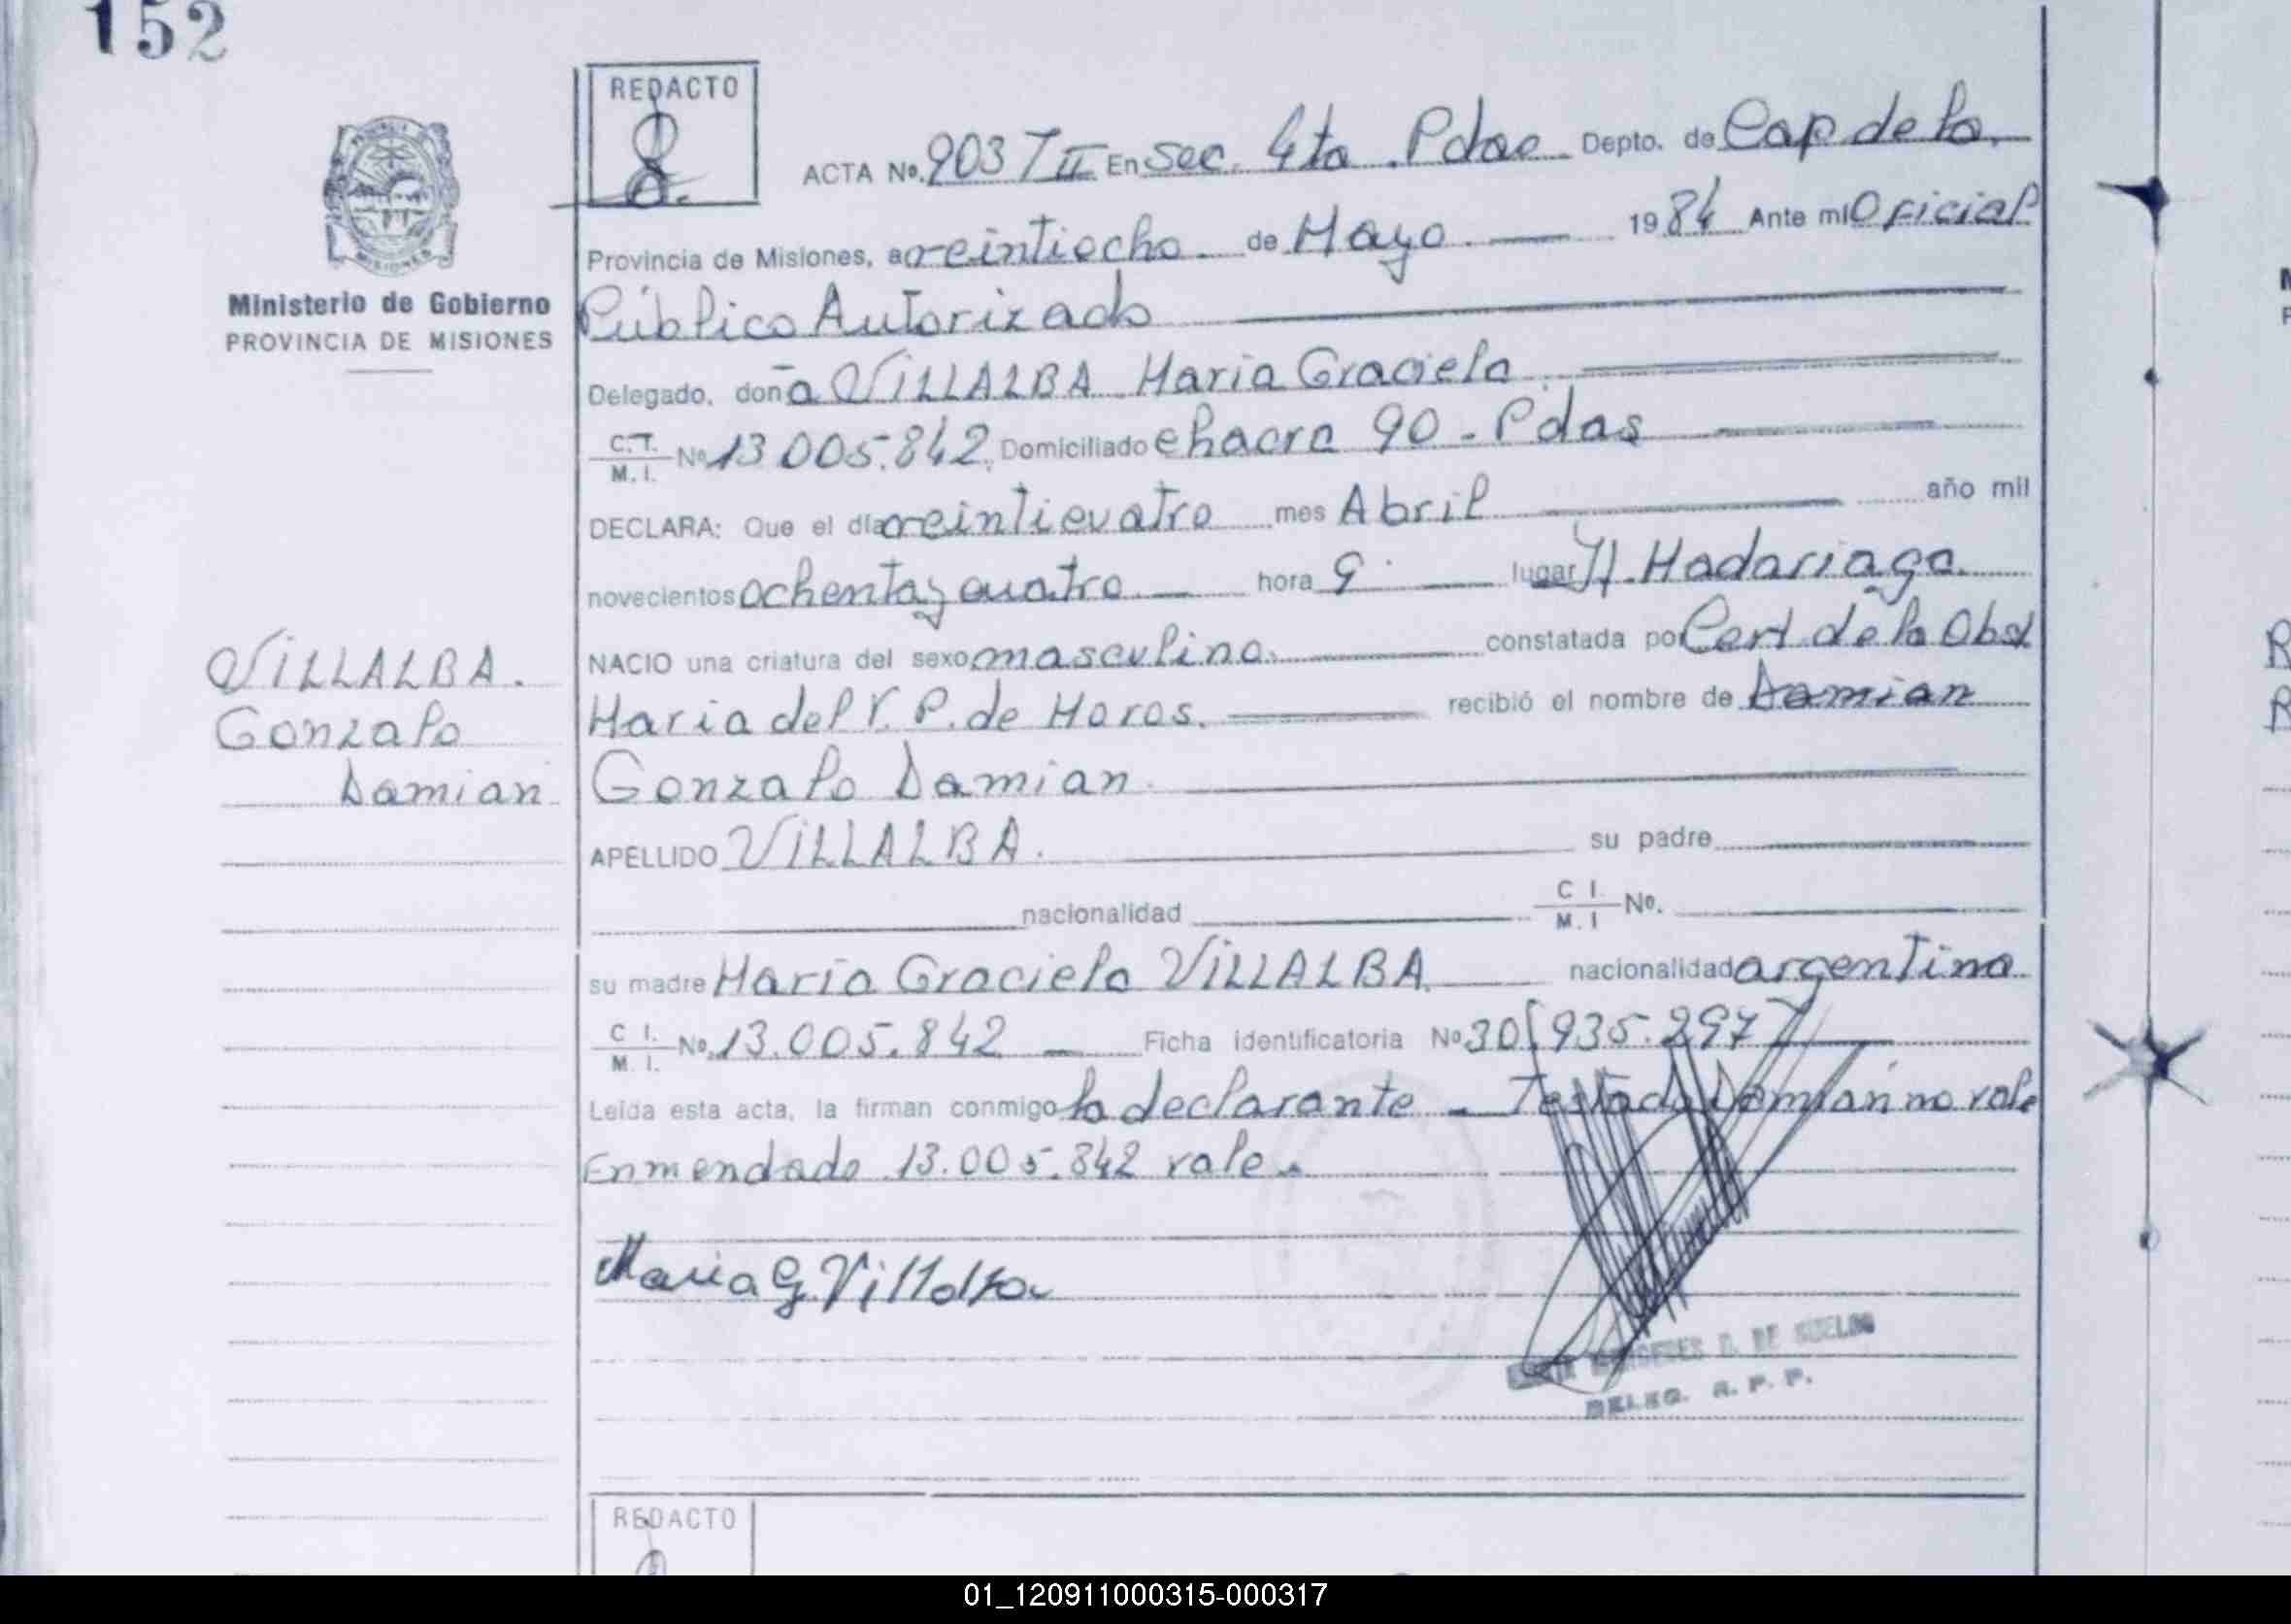 152
REDACTO
ACTA No. 903 T II En Sec. 4ta Pdas Depto. de Cap de la.
Provincia de Misiones, a veintiocho de Mayo. 1984 Ante mi Oficial
Ministerio de Gobierno
PROVINCIA DE MISIONES
Público Autorizado
Delegado, doña VILLALBA Maria Graciela
C.T. M.I. No 13 005.842. Domiciliado chacra 90 - Pdas
DECLARA: Que el día veinticuatro mes Abril año mil
novecientos ochenta y cuatro hora 9 lugar H. Madariaga.
NACIO una criatura del sexo masculino. constatada por Cert. de la Obst
VILLALBA.
Gonzalo
Damian
Maria del V. P. de Moros. recibió el nombre de Damian
Gonzalo Damian.
APELLIDO VILLALBA. su padre
nacionalidad C I. M. I No.
su madre Maria Graciela VILLALBA. nacionalidad argentina
C I. M. I. No. 13.005.842 Ficha identificatoria No 30.935.297
Leída esta acta, la firman conmigo la declarante - Testado Damian no vale
Enmendado 13.005.842 vale.
Maria G. Villalba
DE SUELDO
DELEG. R. P. P.
REDACTO
01_120911000315-000317